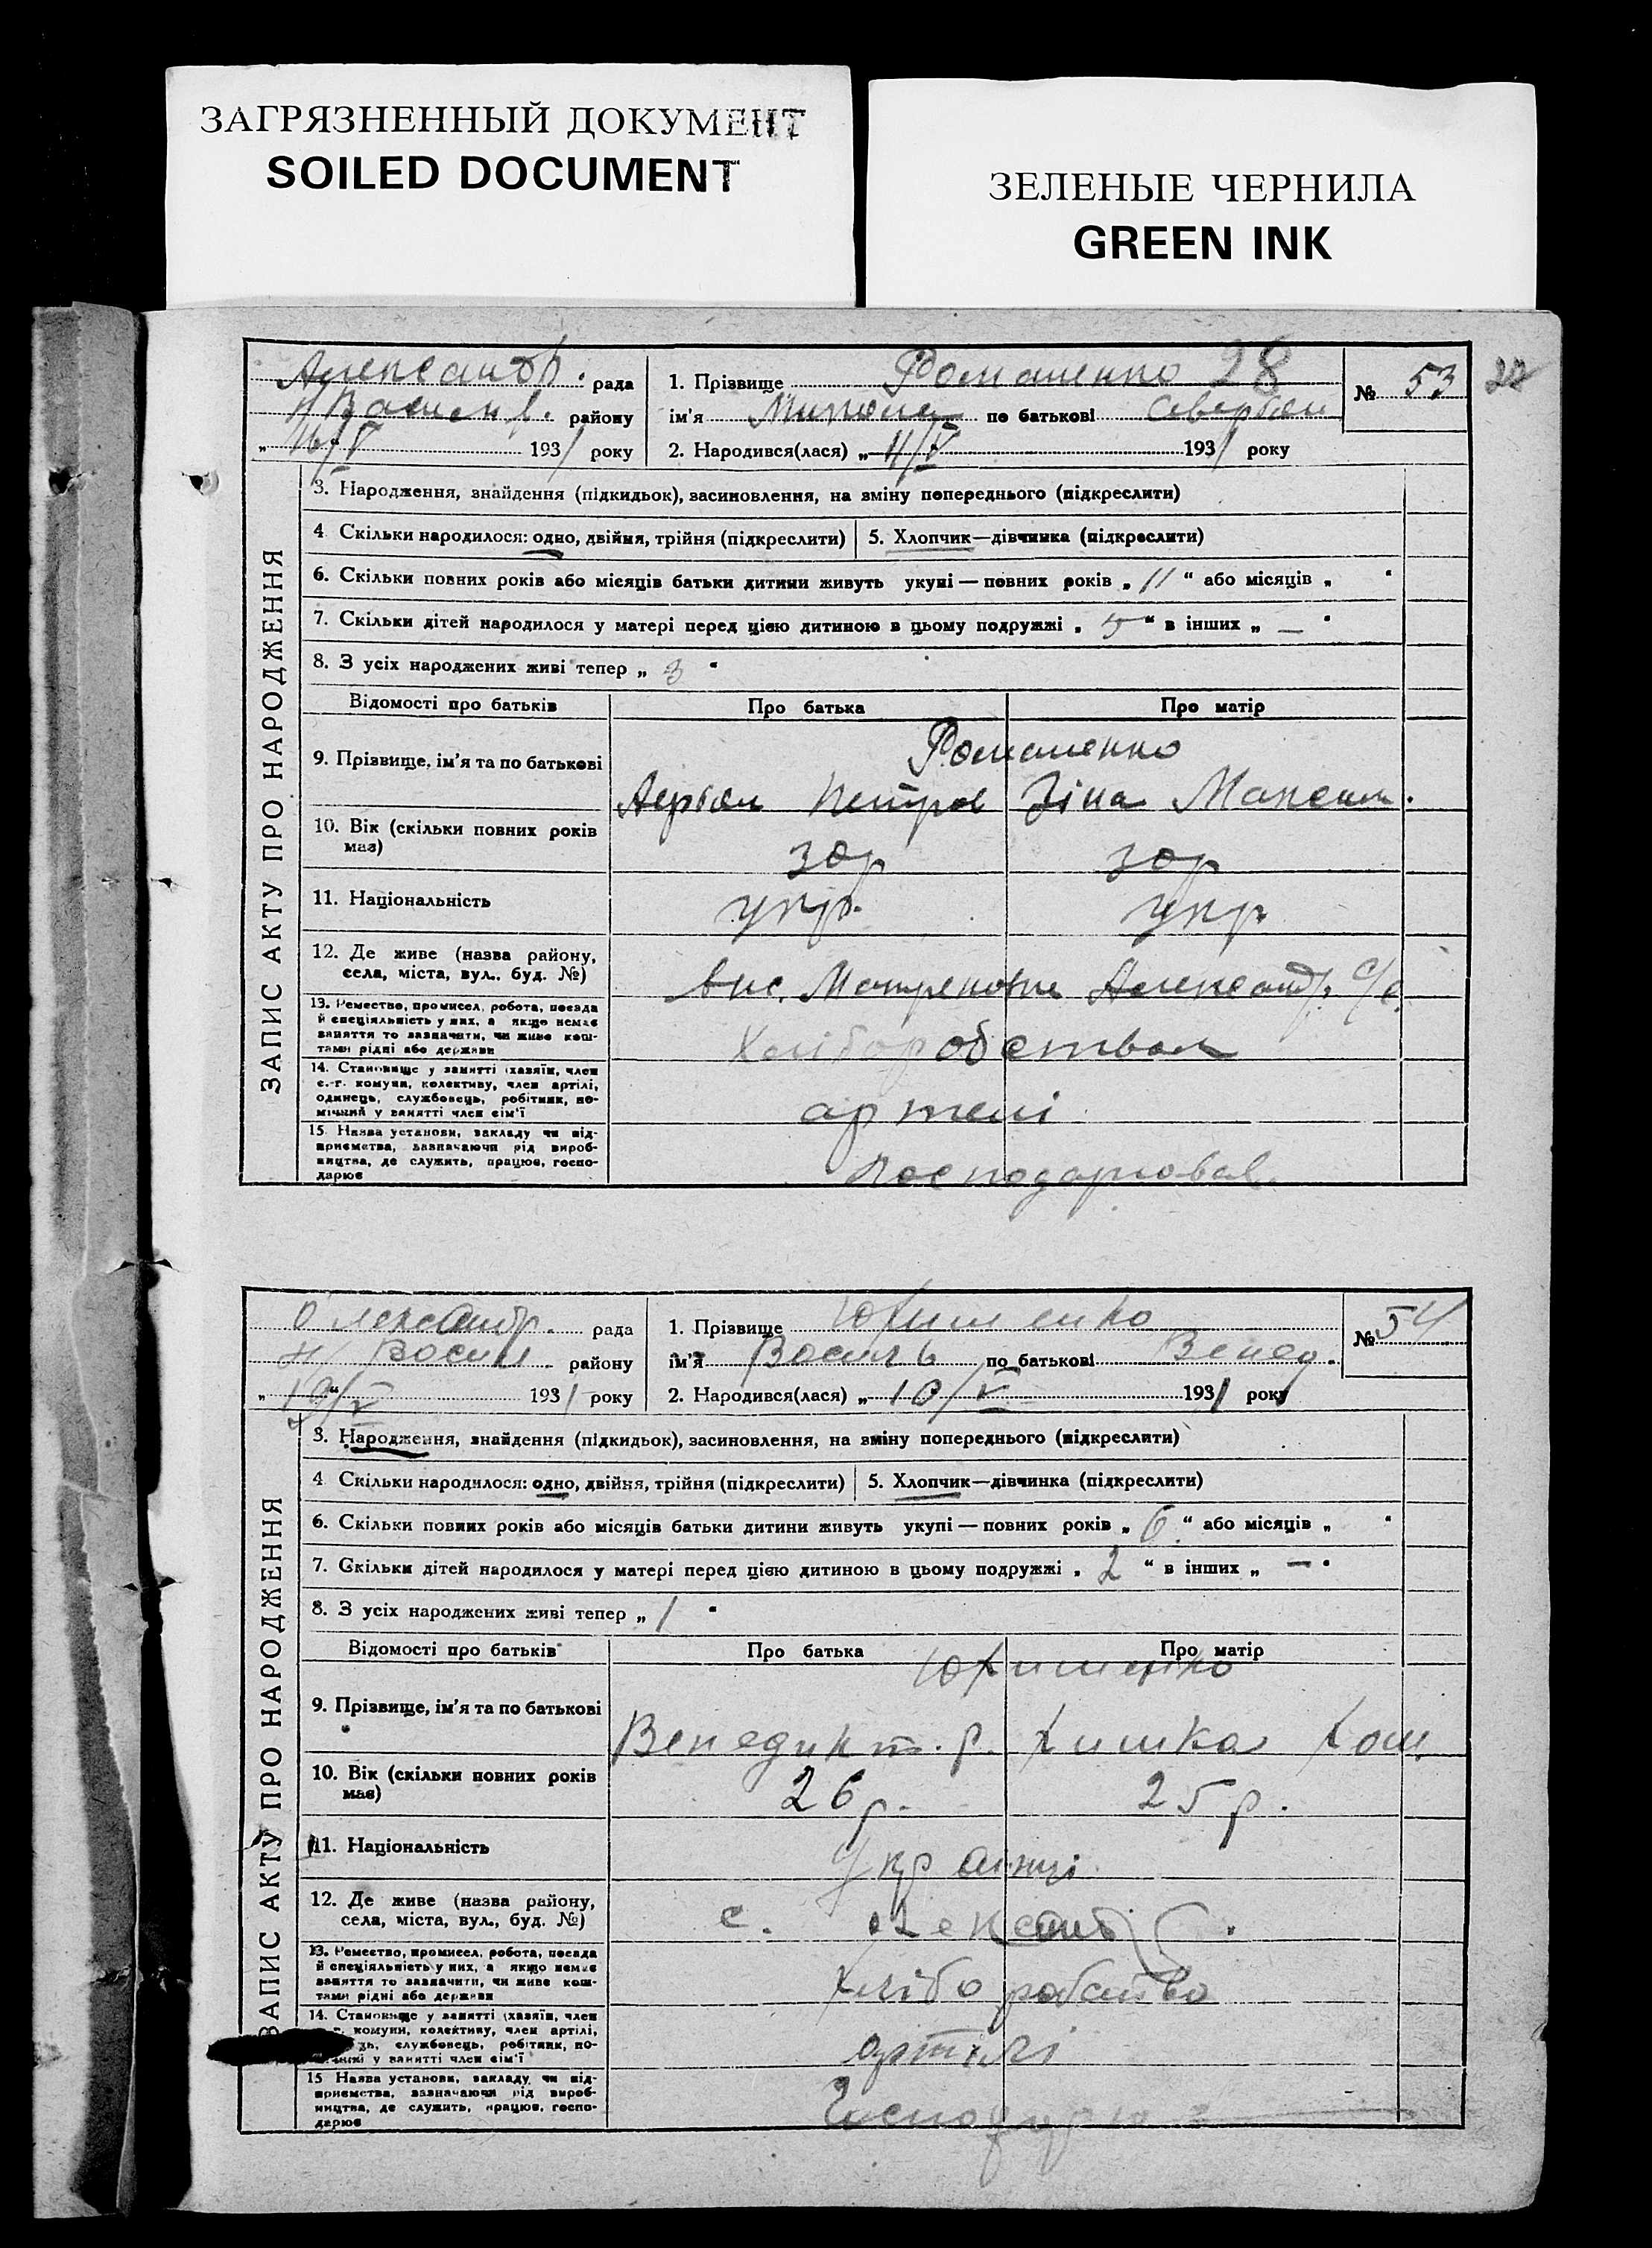 ЗАГРЯЗНЕННЫЙ ДОКУМЕНТ
SOILED DOCUMENT
ЗЕЛЕНЫЕ ЧЕРНИЛА
GREEN INK
ЗАПИС АКТУ ПРО НАРОДЖЕННЯ
Александр. рада
району
16/V 1931 року
1. Прізвище Романенко 28
ім'я Микола по батькові
№ 53
2. Народився(лася) „ 11/V 1931 року
3. Народження, знайдення (підкидьок), засиновлення, на зміну попереднього (підкреслити)
4 Скільки народилося: одно, двійня, трійня (підкреслити)
5. Хлопчик—дівчинка (підкреслити)
6. Скільки повних років або місяців батьки дитини живуть укупі — повних років „ 11 “ або місяців „ “
7. Скільки дітей народилося у матері перед цією дитиною в цьому подружжі „ 5 “ в інших „ — “
8. З усіх народжених живі тепер „ 3 “
Відомості про батьків Про батька Про матір
9. Прізвище, ім'я та по батькові Романенко
Петров Зіна Максим.
10. Вік (скільки повних років має) 30р 30р
11. Національність укр. укр
12. Де живе (назва району,
села, міста, вул., буд. №)
вис. Александр. С/р
13. Ремество, промисел, робота, посада
й спеціяльність у них, а якщо немає
заняття то зазначити, чи живе кош-
тами рідні або держави
14. Становище у занятті (хазяїн, член
с.-г. комуни, колективу, член артілі,
одинець, службовець, робітник, по-
мічний у занятті член сім'ї
артелі
15. Назва установи, закладу чи під-
приємства, зазначаючи рід вироб-
ництва, де служить, працює, госпо-
дарює
ЗАПИС АКТУ ПРО НАРОДЖЕННЯ
Олександр. рада
Н/Васил району
10/V 1931 року
1. Прізвище Юхименко
ім'я Василь по батькові Венед.
№ 54
2. Народився(лася) „ 10/V 1931 року
3. Народження, знайдення (підкидьок), засиновлення, на зміну попереднього (підкреслити)
4 Скільки народилося: одно, двійня, трійня (підкреслити)
5. Хлопчик—дівчинка (підкреслити)
6. Скільки повних років або місяців батьки дитини живуть укупі — повних років „ 6 “ або місяців „ “
7. Скільки дітей народилося у матері перед цією дитиною в цьому подружжі „ 2 “ в інших „ — “
8. З усіх народжених живі тепер „ 1 “
Відомості про батьків Про батька Про матір
9. Прізвище, ім'я та по батькові Юхименко
Венедикт. Р. Химка Хом.
10. Вік (скільки повних років має) 26 р. 25 р.
11. Національність Українці
12. Де живе (назва району,
села, міста, вул., буд. №)
с.
13. Ремество, промисел, робота, посада
й спеціяльність у них, а якщо немає
заняття то зазначити, чи живе кош-
тами рідні або держави
Хліборобство
14. Становище у занятті (хазяїн, член
комуни, колективу, член артілі,
службовець, робітник, по-
у занятті член сім'ї
артілі
15 Назва установи, закладу чи під-
приємства, зазначаючи рід вироб-
ництва, де служить, працює, госпо-
дарює